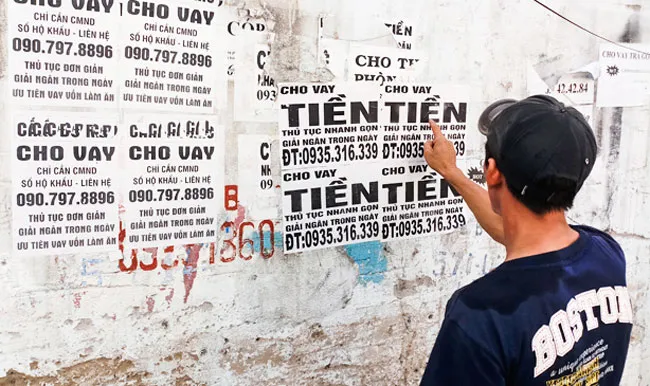 CHO VAY
CHỈ CẦN CMND
SỔ HỘ KHẨU - LIÊN HỆ
090.797.8896
THỦ TỤC ĐƠN GIẢN
GIẢI NGÂN TRONG NGÀY
ƯU TIÊN VAY VỐN LÀM ĂN
CHO VAY
CHỈ CẦN CMND
SỔ HỘ KHẨU - LIÊN HỆ
090.797.8896
THỦ TỤC ĐƠN GIẢN
GIẢI NGÂN TRONG NGÀY
ƯU TIÊN VAY VỐN LÀM ĂN
CHO VAY
CHỈ CẦN CMND
SỔ HỘ KHẨU - LIÊN HỆ
090.797.8896
THỦ TỤC ĐƠN GIẢN
GIẢI NGÂN TRONG NGÀY
ƯU TIÊN VAY VỐN LÀM ĂN
CHO VAY
CHỈ CẦN CMND
SỔ HỘ KHẨU - LIÊN HỆ
090.797.8896
THỦ TỤC ĐƠN GIẢN
GIẢI NGÂN TRONG NGÀY
ƯU TIÊN VAY VỐN LÀM ĂN
TIỀN
CHO
PHÒN
CHO VAY
TIỀN
THỦ TỤC NHANH GỌN
GIẢI NGÂN TRONG NGÀY
ĐT:0935.316.339
CHO VAY
TIỀN
THỦ TỤC NHANH GỌN
GIẢI NGÂN TRONG NGÀY
ĐT:0935.316.339
CHO VAY
TIỀN
THỦ TỤC NHANH GỌN
GIẢI NGÂN TRONG NGÀY
ĐT:0935.316.339
CHO VAY
TIỀN
THỦ TỤC NHANH GỌN
GIẢI NGÂN TRONG NGÀY
ĐT:0935.316.339
CHO VAY TRẢ GÓ
42.42.84
B
BOSTON